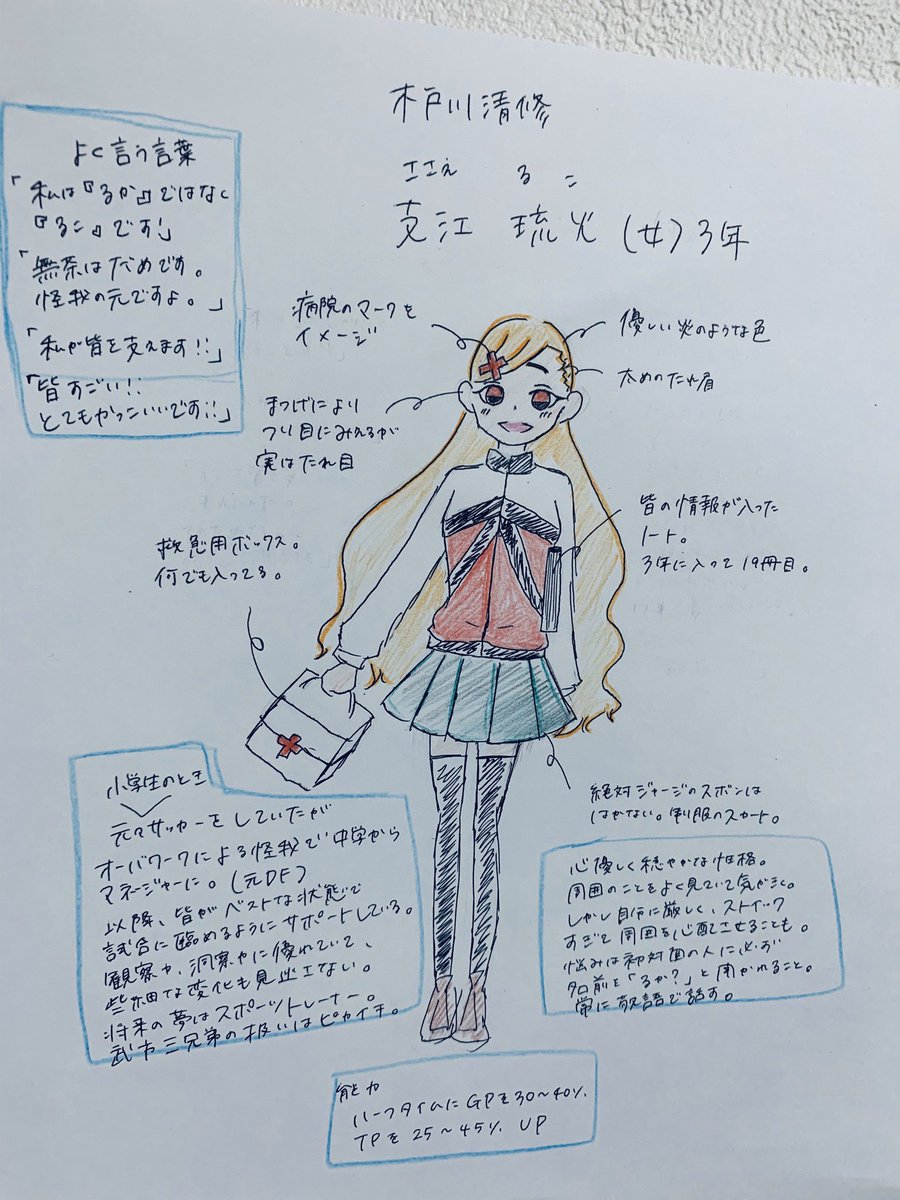 木戸川清修
ささえ るこ
支江 琉火 (女) 3年
よく言う言葉
「私は『るか』ではなく
『るこ』です!」
「無茶はだめです。
怪我の元ですよ。」
「私が皆を支えます!!」
「皆すごい!!
とてもかっこいいです!!」
病院のマークを
イメージ
優しい炎のような色
太めのたれ眉
まつげにより
つり目にみえるが
実はたれ目
皆の情報が入った
ノート。
3年に入って19冊目。
救急用ボックス。
何でも入ってる。
絶対ジャージのズボンは
はかない。制服のスカート。
小学生のとき
元々サッカーをしていたが
オーバワークによる怪我で中学から
マネージャーに。(元DF)
以降、皆がベストな状態で
試合に臨めるようにサポートしている。
観察力、洞察力に優れていて、
些細な変化も見逃さない。
将来の夢はスポーツトレーナー。
武方三兄弟の扱いはピカイチ。
心優しく穏やかな性格。
周囲のことをよく見ていて気がきく。
しかし自分に厳しく、ストイック
すぎて周囲を心配させることも。
悩みは初対面の人に必ず
名前を「るか?」と聞かれること。
常に敬語で話す。
能力
ハーフタイムにGPを30〜40%
TPを25〜45% UP